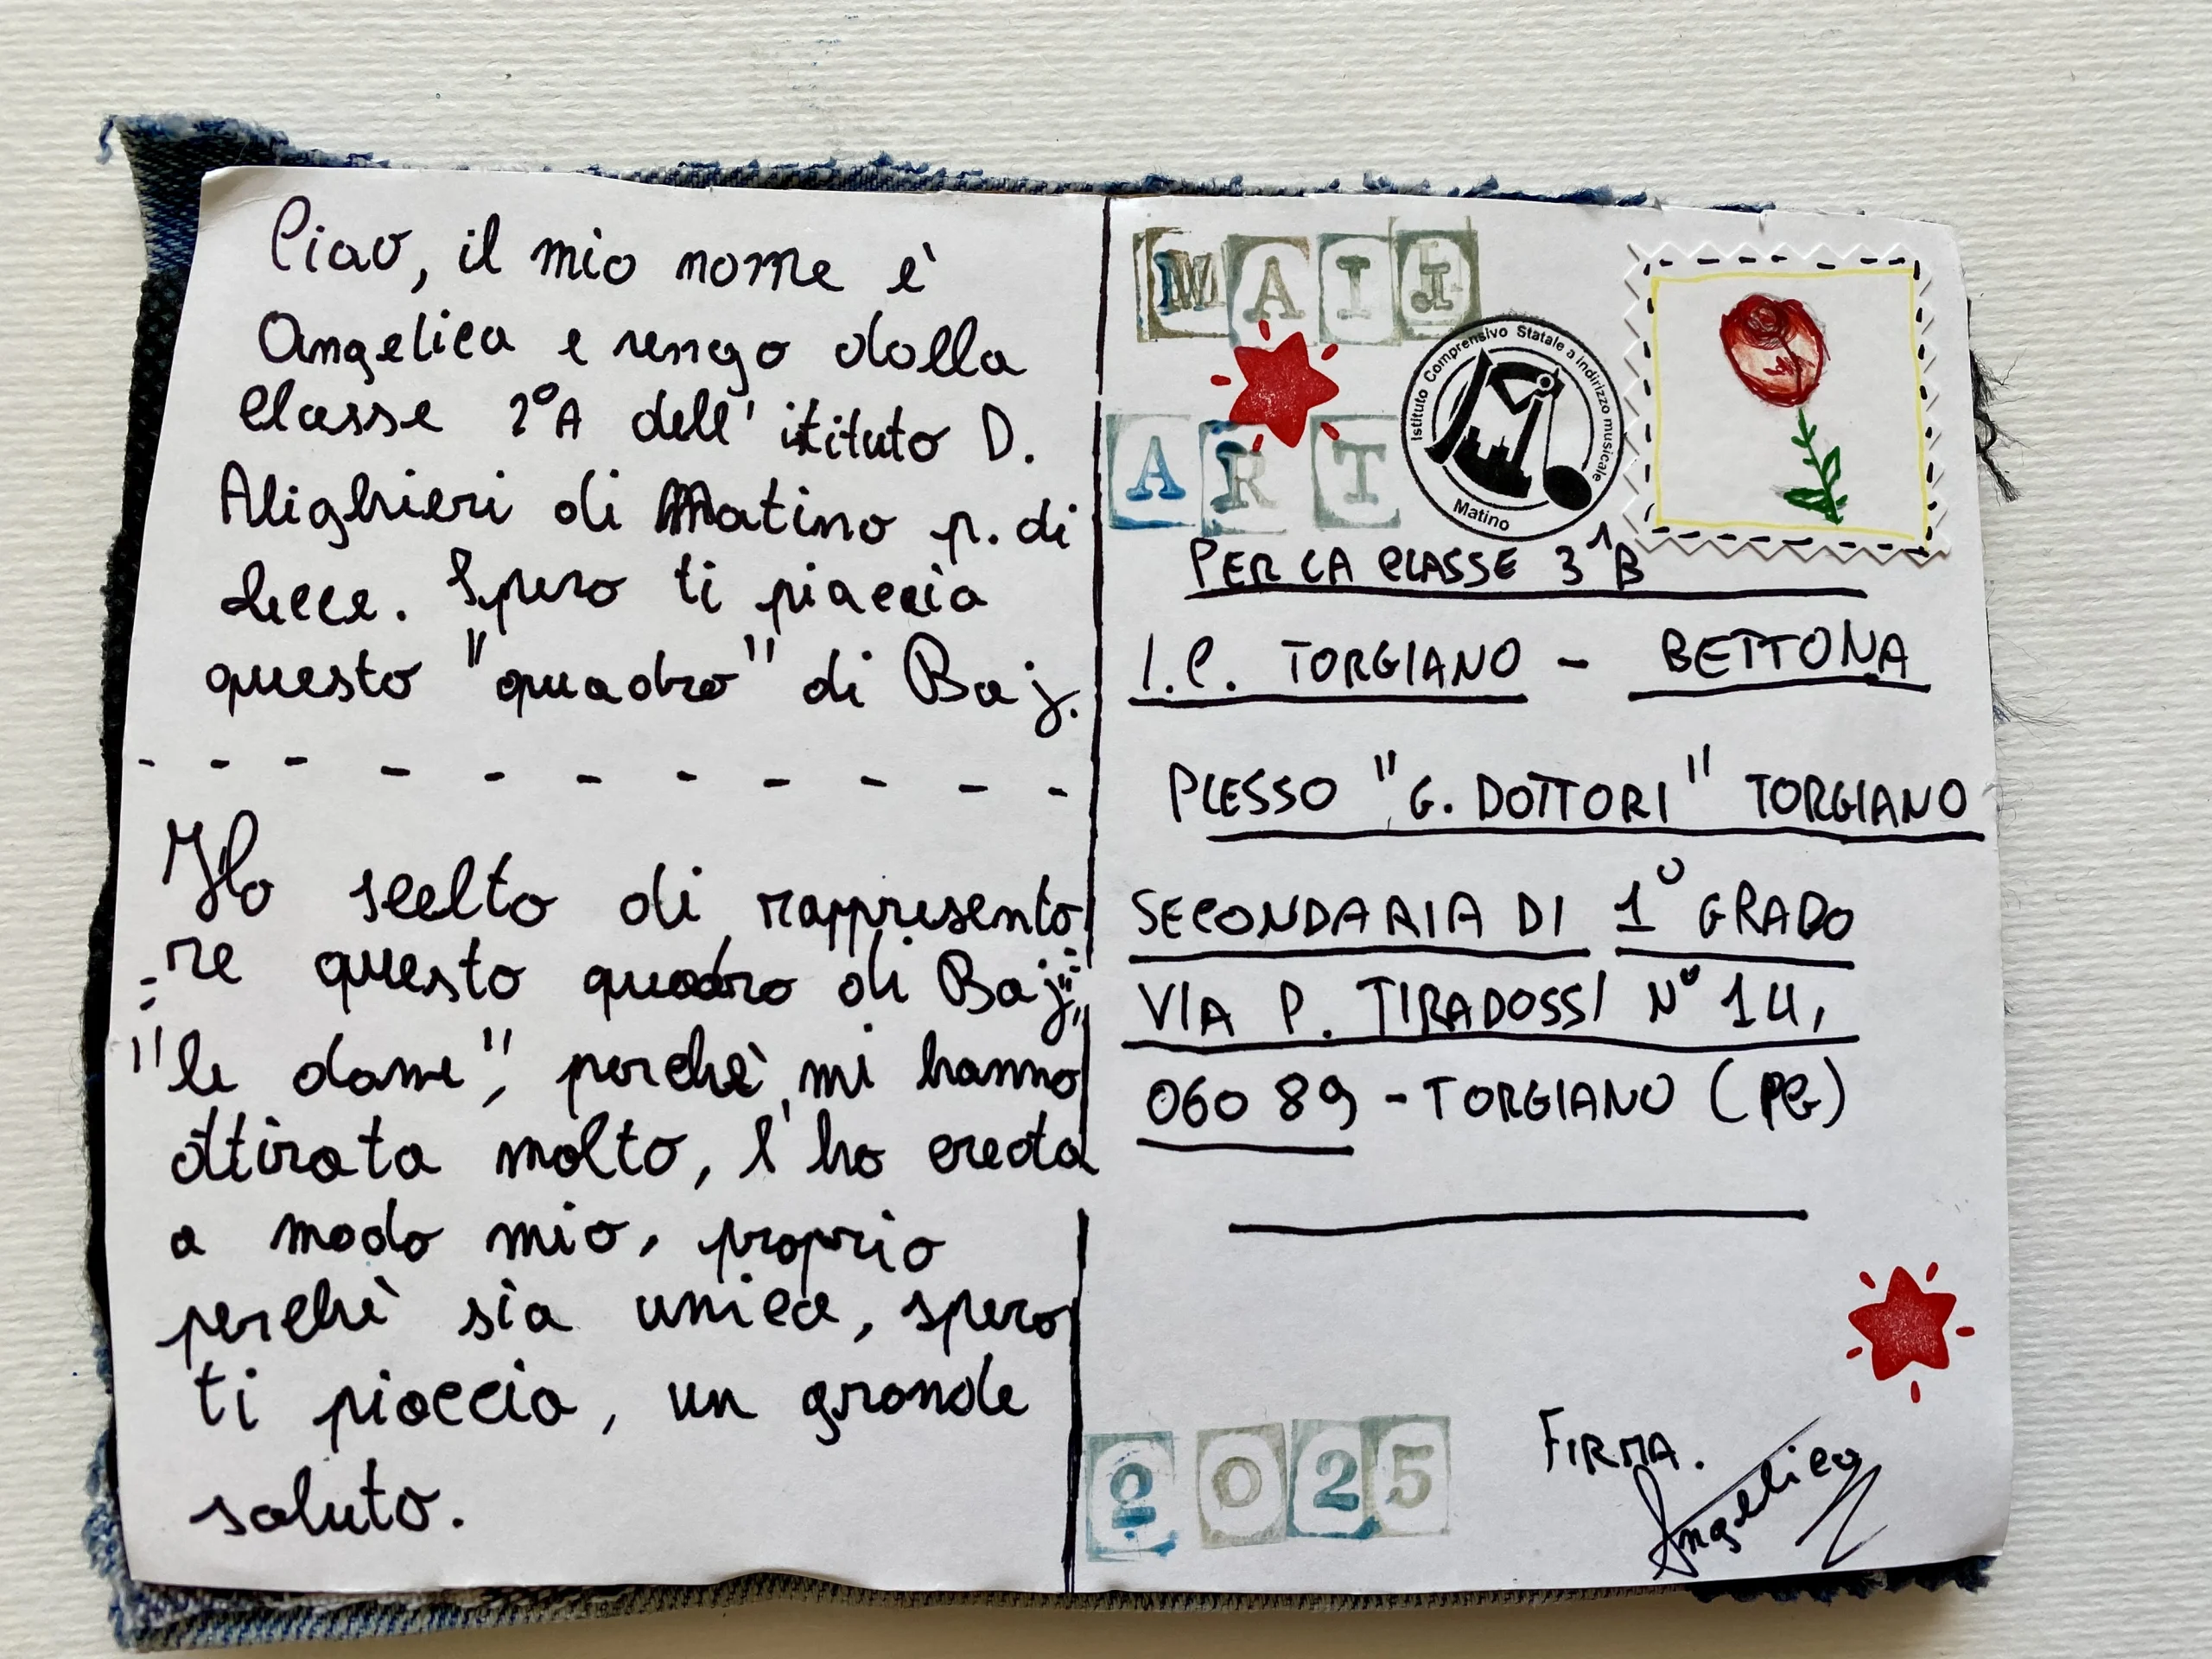 Ciao, il mio nome è
Angelica e vengo dalla
classe 2°A dell' istituto D.
Alighieri di Matino p. di
Lecce. Spero ti piaccia
questo "quadro" di Baj.
Ho scelto di rappresenta
re questo quadro di Baj,
"le dame", perchè mi hanno
attirata molto, l'ho creata
a modo mio, proprio
perchè sia unica, spero
ti piaccia, un grande
saluto.
MAIL
ART
Istituto Comprensivo Statale a indirizzo musicale
Matino
PER LA CLASSE 3^B
I.C. TORGIANO - BETTONA
PLESSO "G. DOTTORI" TORGIANO
SECONDARIA DI 1° GRADO
VIA P. TIRADOSSI N° 14,
06089 - TORGIANO (PG)
2025
FIRMA.
Angelica